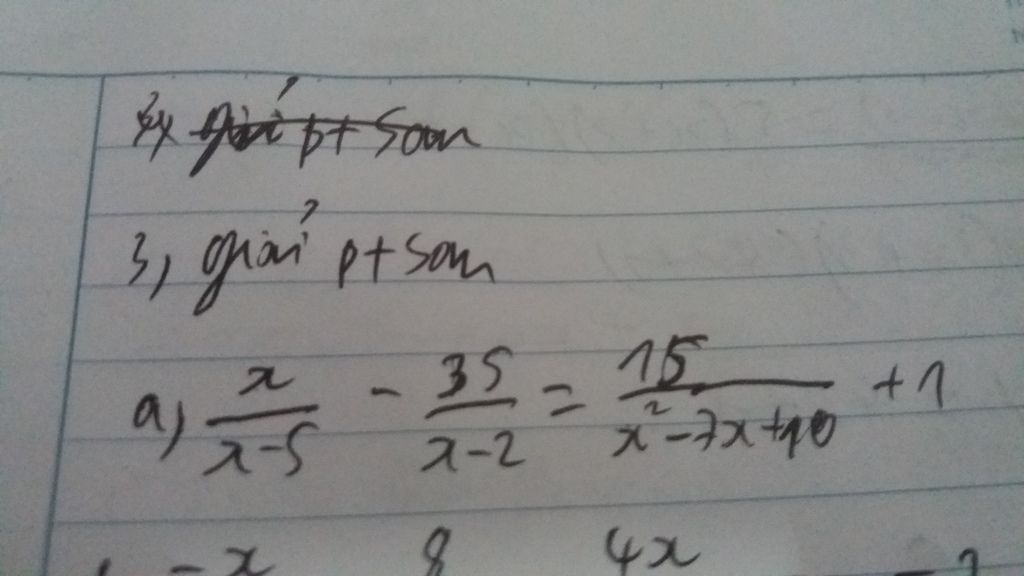 giải pt sau
3, giải pt sau
a, x/(x-5) - 35/(x-2) = 15/(x²-7x+10) + 1
-x 8 4x